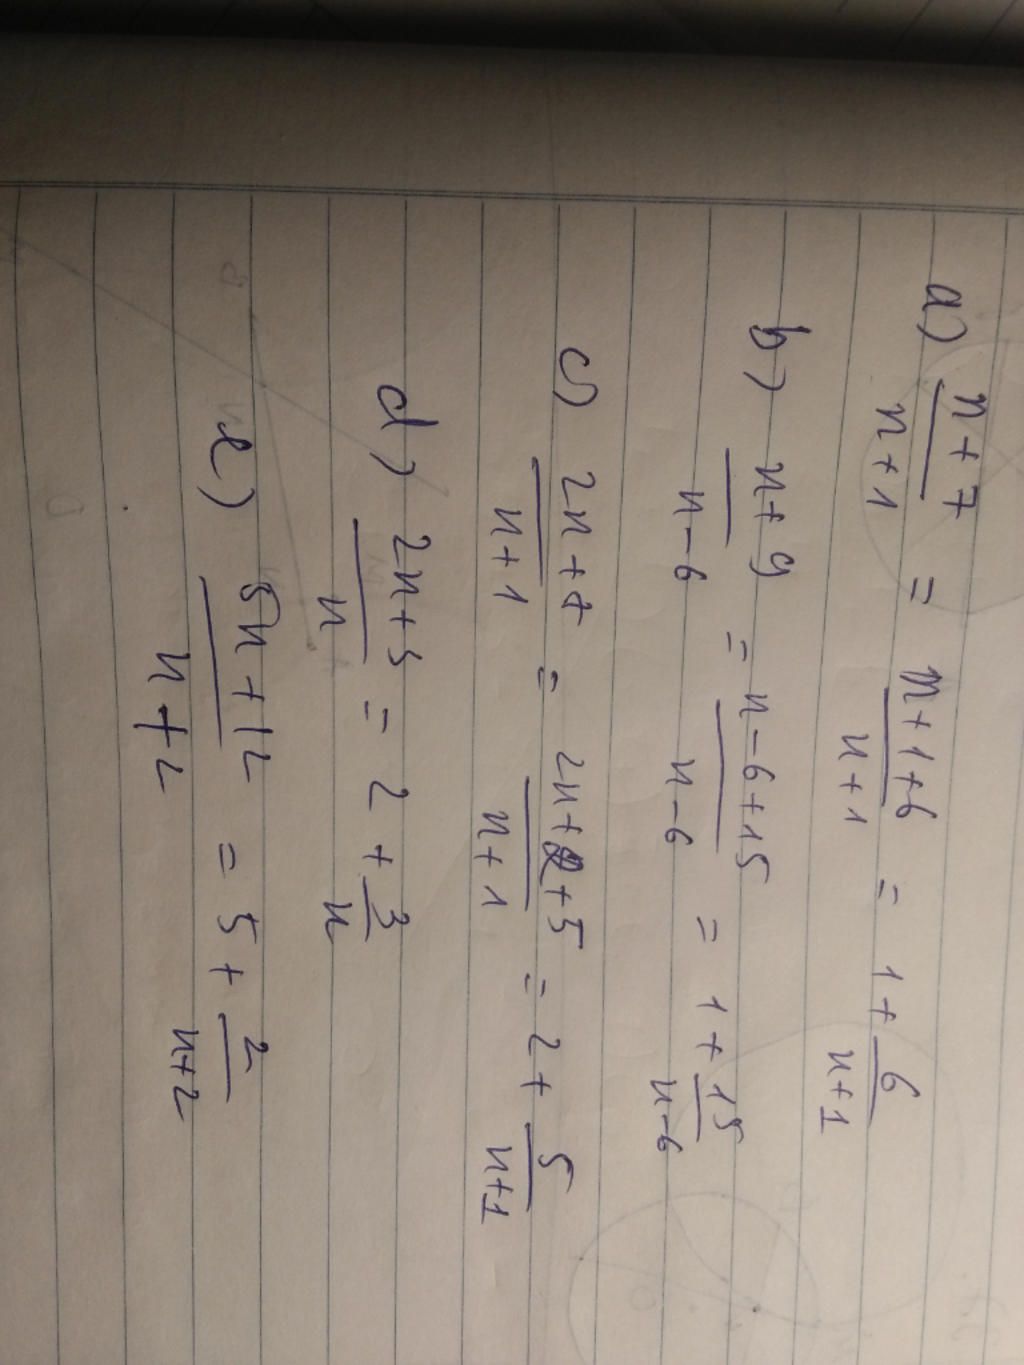 a) (n+7)/(n+1) = (n+1+6)/(n+1) = 1 + 6/(n+1)
b) (n+9)/(n-6) = (n-6+15)/(n-6) = 1 + 15/(n-6)
c) (2n+7)/(n+1) = (2n+2+5)/(n+1) = 2 + 5/(n+1)
d) (2n+3)/n = 2 + 3/n
e) (5n+12)/(n+2) = 5 + 2/(n+2)